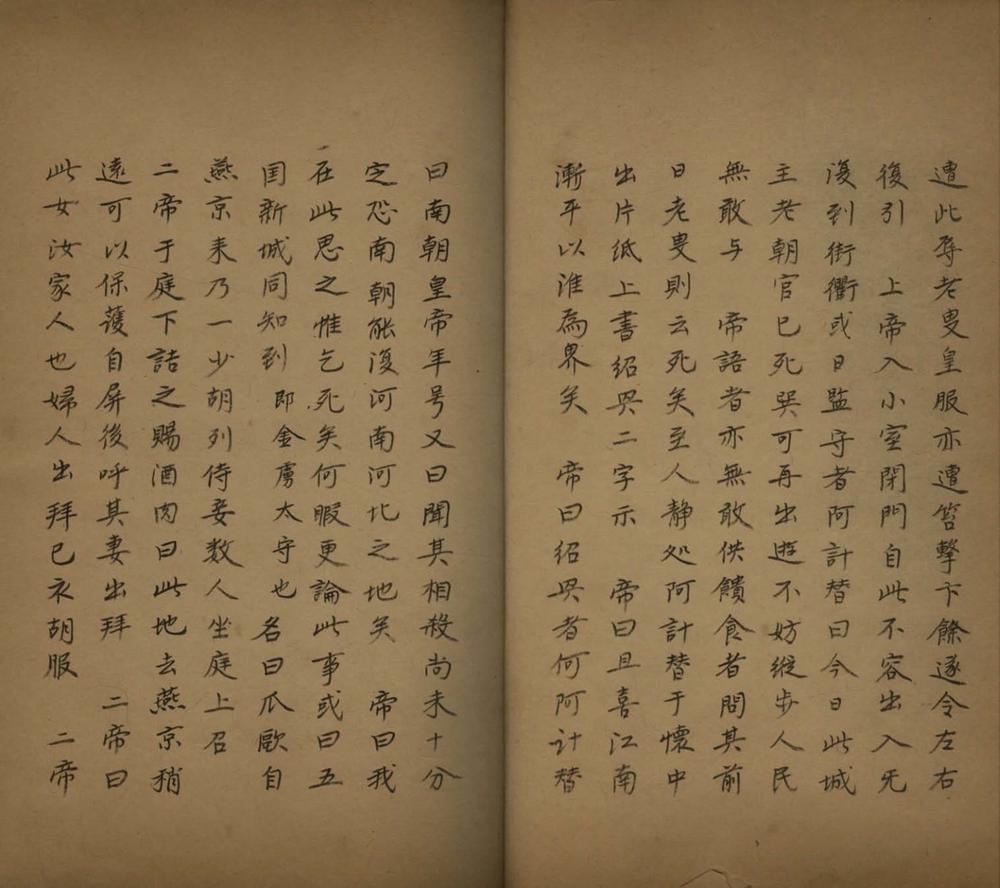 遭此辱老叟皇服亦遭笞擊卞餘遂令左右
後引　上帝入小室閉門自此不容出入旡
復到街衢或日監守者阿計替曰今日此城
主老朝官已死哭可再出遊不妨縱步人民
無敢与　帝語者亦無敢供饋食者問其前
日老叟則云死矣至人靜処阿計替于懷中
出片纸上書绍兴二字示　帝曰且喜江南
漸平以淮為界矣　帝曰绍兴者何阿计替
曰南朝皇帝年号又曰聞其相殺尚未十分
定恐南朝能復河南河北之地矣　帝曰我
在此思之惟乞死矣何暇更論此事或曰五
国新城同知到　即金虜太守也　名曰瓜歐自
燕京来乃一少胡列侍妾数人坐庭上召
二帝于庭下詰之賜酒肉曰此地去燕京稍
遠可以保護自屏後呼其妻出拜　二帝曰
此女汝家人也婦人出拜已衣胡服　二帝